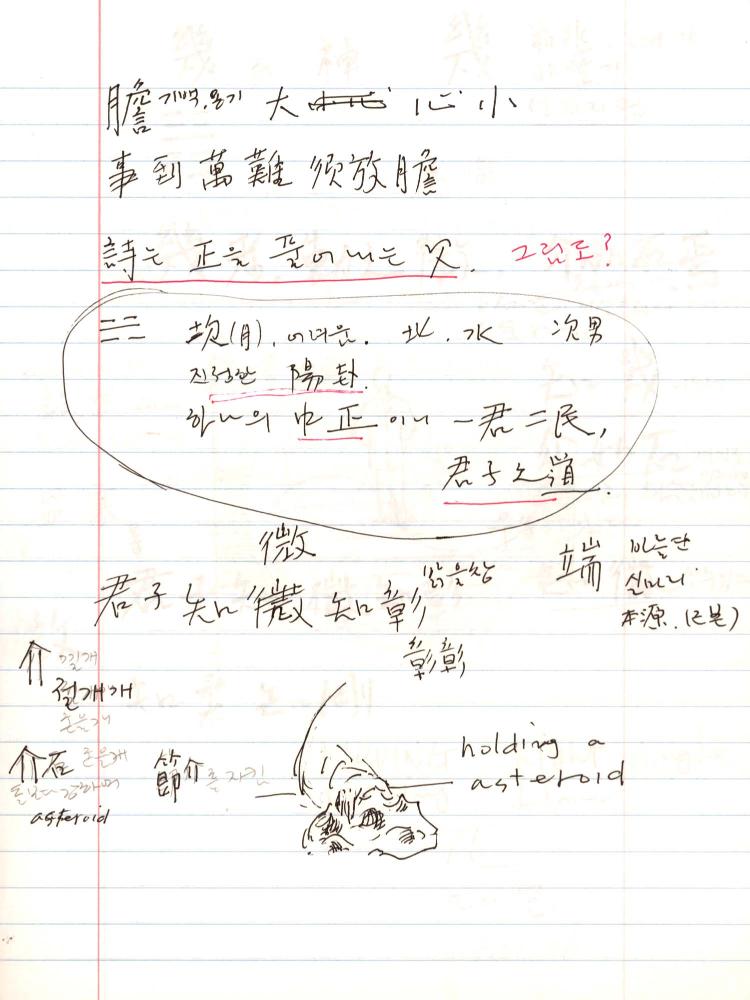 膽 기백, 용기 大 心小
事到萬難須放膽
詩는 正을 풀어내는 父. 그림도?
坎(月), 어려움. 北. 水 次男
진정한 陽卦.
하나의 中正이니 一君二民,
君子之道.
微
君子知微知彰 맑을창
彰彰
端 바늘단
실마리
本源. (근본)
介 낄개
절개개
흔들개
介石 흔들개
돌보다 강하며
asteroid
節介를 지킴
holding a
asteroid